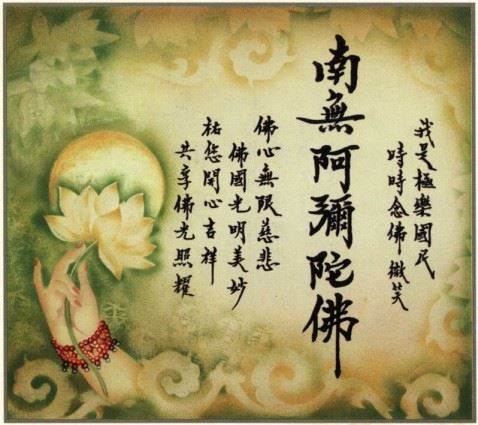 我是極樂國民
時時念佛微笑
南無阿彌陀佛
佛心無限慈悲
佛國光明美妙
祐您開心吉祥
共享佛光照耀